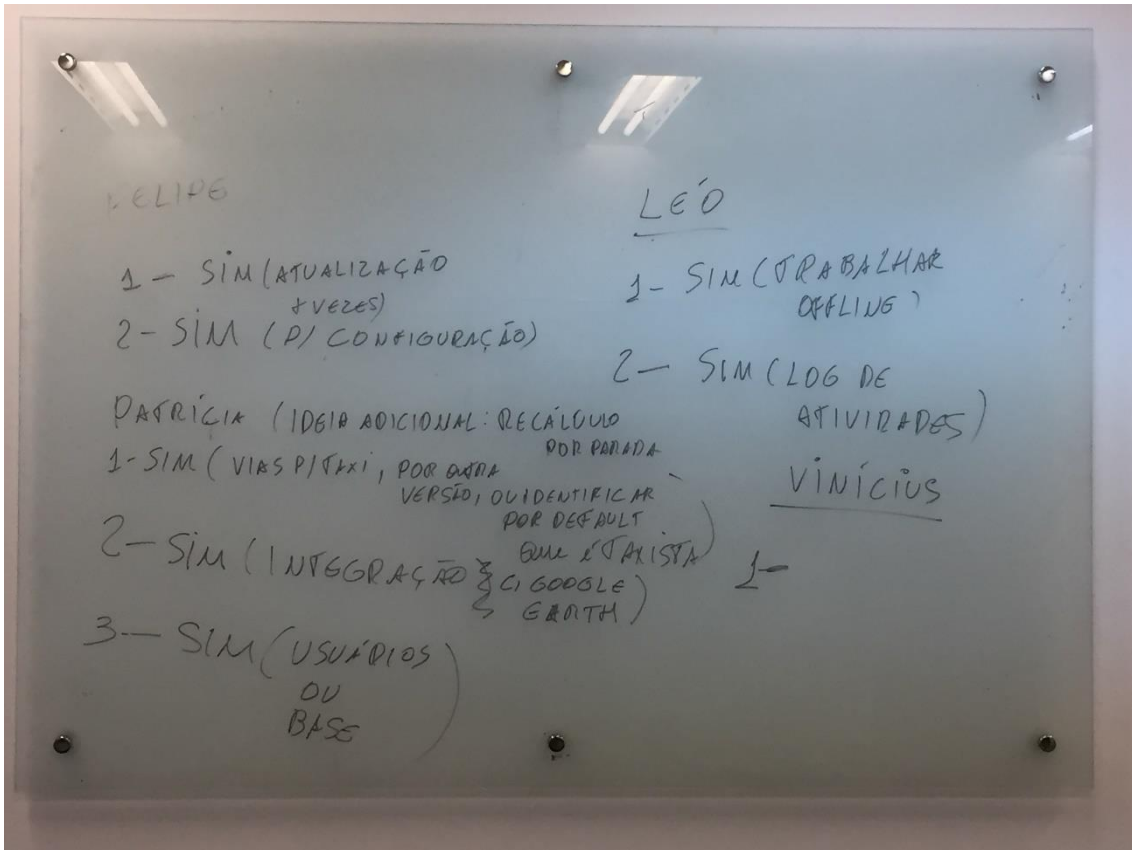 FELIPE
1 - SIM (ATUALIZAÇÃO
+ VEZES)
2 - SIM (P/ CONFIGURAÇÃO)
PATRÍCIA (IDEIA ADICIONAL: RECÁLCULO
POR PARADA
1 - SIM (VIAS P/ TAXI, POR OUTRA
VERSÃO, OU IDENTIFICAR
POR DEFAULT
QUE É TAXISTA)
2 - SIM (INTEGRAÇÃO
C/ GOOGLE
EARTH)
3 - SIM (USUÁRIOS
OU
BASE)
LEÓ
1 - SIM (TRABALHAR
OFFLINE)
2 - SIM (LOG DE
ATIVIDADES)
VINÍCIUS
1 -